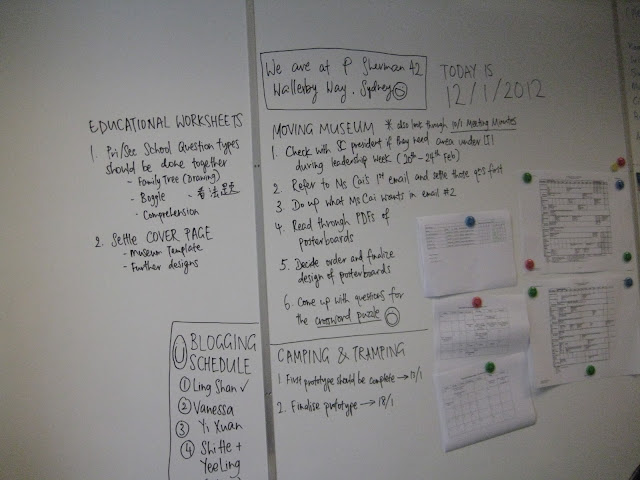 We are at P Sherman 42
Wallerby Way, Sydney
TODAY IS
12/1/2012
EDUCATIONAL WORKSHEETS
1. Pri/Sec School Question types
should be done together
- Family Tree (Drawing)
- Boggle
- Comprehension
2. Settle COVER PAGE
- Museum Template
- Further designs
MOVING MUSEUM * also look through 10/1 Meeting Minutes
1. Check with SC president if they need area under LT1
during leadership week (20th - 24th Feb)
2. Refer to Ms Cai's 1st email and settle those qns first
3. Do up what Ms Cai wants in email #2
4. Read through PDFs of
posterboards
5. Decide order and finalize
design of posterboards
6. Come up with questions for
the crossword puzzle
BLOGGING
SCHEDULE
1 Ling Shan ✓
2 Vanessa
3 Yi Xuan
4 Shiffe +
YeeLing
CAMPING & TRAMPING
1. First prototype should be complete → 15/1
2. Finalise prototype → 18/1